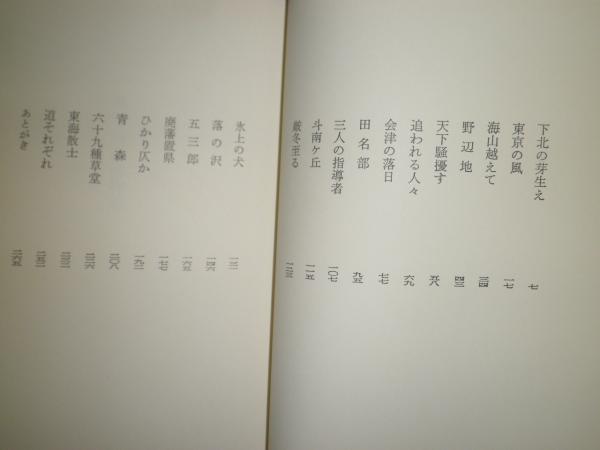 下北の芽生え 七
東京の風 一七
海山越えて 三四
野辺地 四三
天下騒擾す 五八
追われる人々 六九
会津の落日 七七
田名部 九五
三人の指導者 一〇七
斗南ヶ丘 一一五
厳冬至る 一二三
氷上の犬 一三一
落の沢 一四六
五三郎 一六五
廃藩置県 一七七
ひかり仄か 一九二
青森 二〇八
六十九種草堂 二二六
東海散士 二三三
道それぞれ 二五二
あとがき 二六五